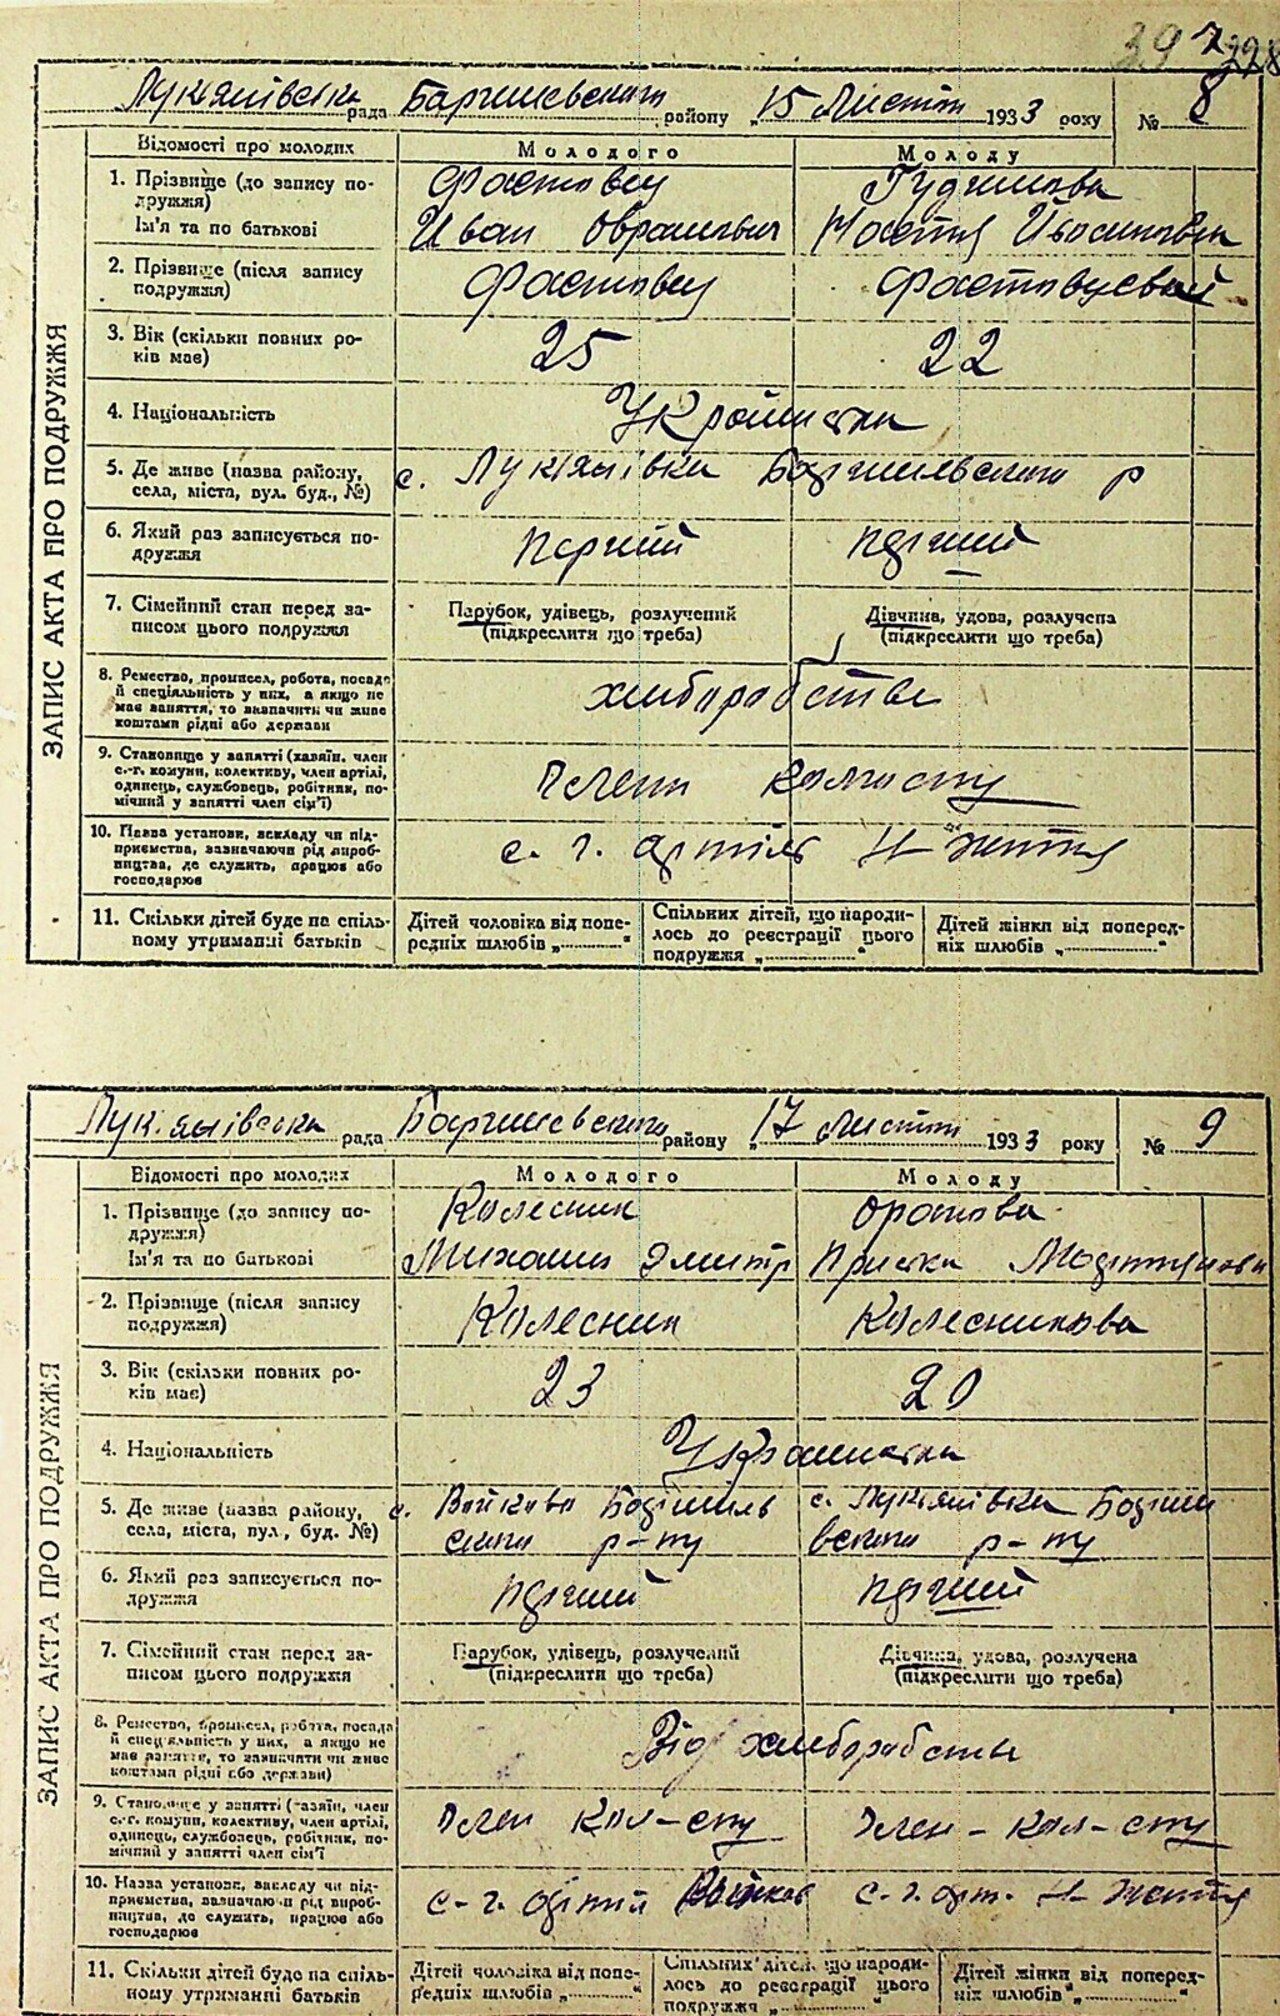 397 228
Лукянівська рада Баришевського району „15 Листоп 1933 року № 8
ЗАПИС АКТА ПРО ПОДРУЖЖЯ
Відомості про молодих
Молодого
Молоду
1. Прізвище (до запису по-
дружжя)
Ім'я та по батькові
Фастовец
Иван
Настя
2. Прізвище (після запису
подружжя)
Фастовец
3. Вік (скільки повних ро-
ків має)
25
22
4. Національність
Українська
5. Де живе (назва району,
села, міста, вул. буд., №)
с. Лукянівка Баришевського р
6. Який раз записується по-
дружжя
перший
перший
7. Сімейний стан перед за-
писом цього подружжя
Парубок, удівець, розлучений
(підкреслити що треба)
Дівчина, удова, розлучена
(підкреслити що треба)
8. Ремество, промисел, робота, посада
й спеціяльність у них, а якщо не
має заняття, то визначить чи живе
коштами рідні або держави
хліборобство
9. Становище у занятті (хазяїн, член
с.-г. комуни, колективу, член артілі,
одинець, службовець, робітник, по-
мічний у занятті член сім'ї)
члени колгоспу
10. Назва установи, закладу чи під-
приємства, зазначаючи рід вироб-
ництва, де служить, працює або
господарює
с. г. артіль Н життя
11. Скільки дітей буде на спіль-
ному утриманні батьків
Дітей чоловіка від попе-
редніх шлюбів „............“
Спільних дітей, що народи-
лось до реєстрації цього
подружжя „............“
Дітей жінки від поперед-
ніх шлюбів „............“
Лук.янівська рада Баришевського району „17 Листоп 1933 року № 9
ЗАПИС АКТА ПРО ПОДРУЖЖЯ
Відомості про молодих
Молодого
Молоду
1. Прізвище (до запису по-
дружжя)
Ім'я та по батькові
Колесник
Михаил Дмитр
Приська
2. Прізвище (після запису
подружжя)
Колесник
Колесникова
3. Вік (скільки повних ро-
ків має)
23
20
4. Національність
Українська
5. Де живе (назва району,
села, міста, вул., буд. №)
с. Войкове Баришев
ського р-ну
с. Лукянівка Бариш
вського р-ну
6. Який раз записується по-
дружжя
перший
перший
7. Сімейний стан перед за-
писом цього подружжя
Парубок, удівець, розлучений
(підкреслити що треба)
Дівчина, удова, розлучена
(підкреслити що треба)
8. Ремество, промисел, робота, посада
й спеціяльність у них, а якщо не
має заняття, то зазначити чи живе
коштами рідні або держави)
Від хліборобства
9. Становище у занятті (хазяїн, член
с.-г. комуни, колективу, член артілі,
одинець, службовець, робітник, по-
мічний у занятті член сім'ї
член кол-спу
Член - кол-спу
10. Назва установи, закладу чи під-
приємства, зазначаючи рід вироб-
ництва, де служить, працює або
господарює
с-г. артіл Войков
с. г. арт. Н життя
11. Скільки дітей буде на спіль-
ному утриманні батьків
Дітей чоловіка від попе-
редніх шлюбів „............“
Спільних дітей, що народи-
лось до реєстрації цього
подружжя „............“
Дітей жінки від поперед-
ніх шлюбів „............“